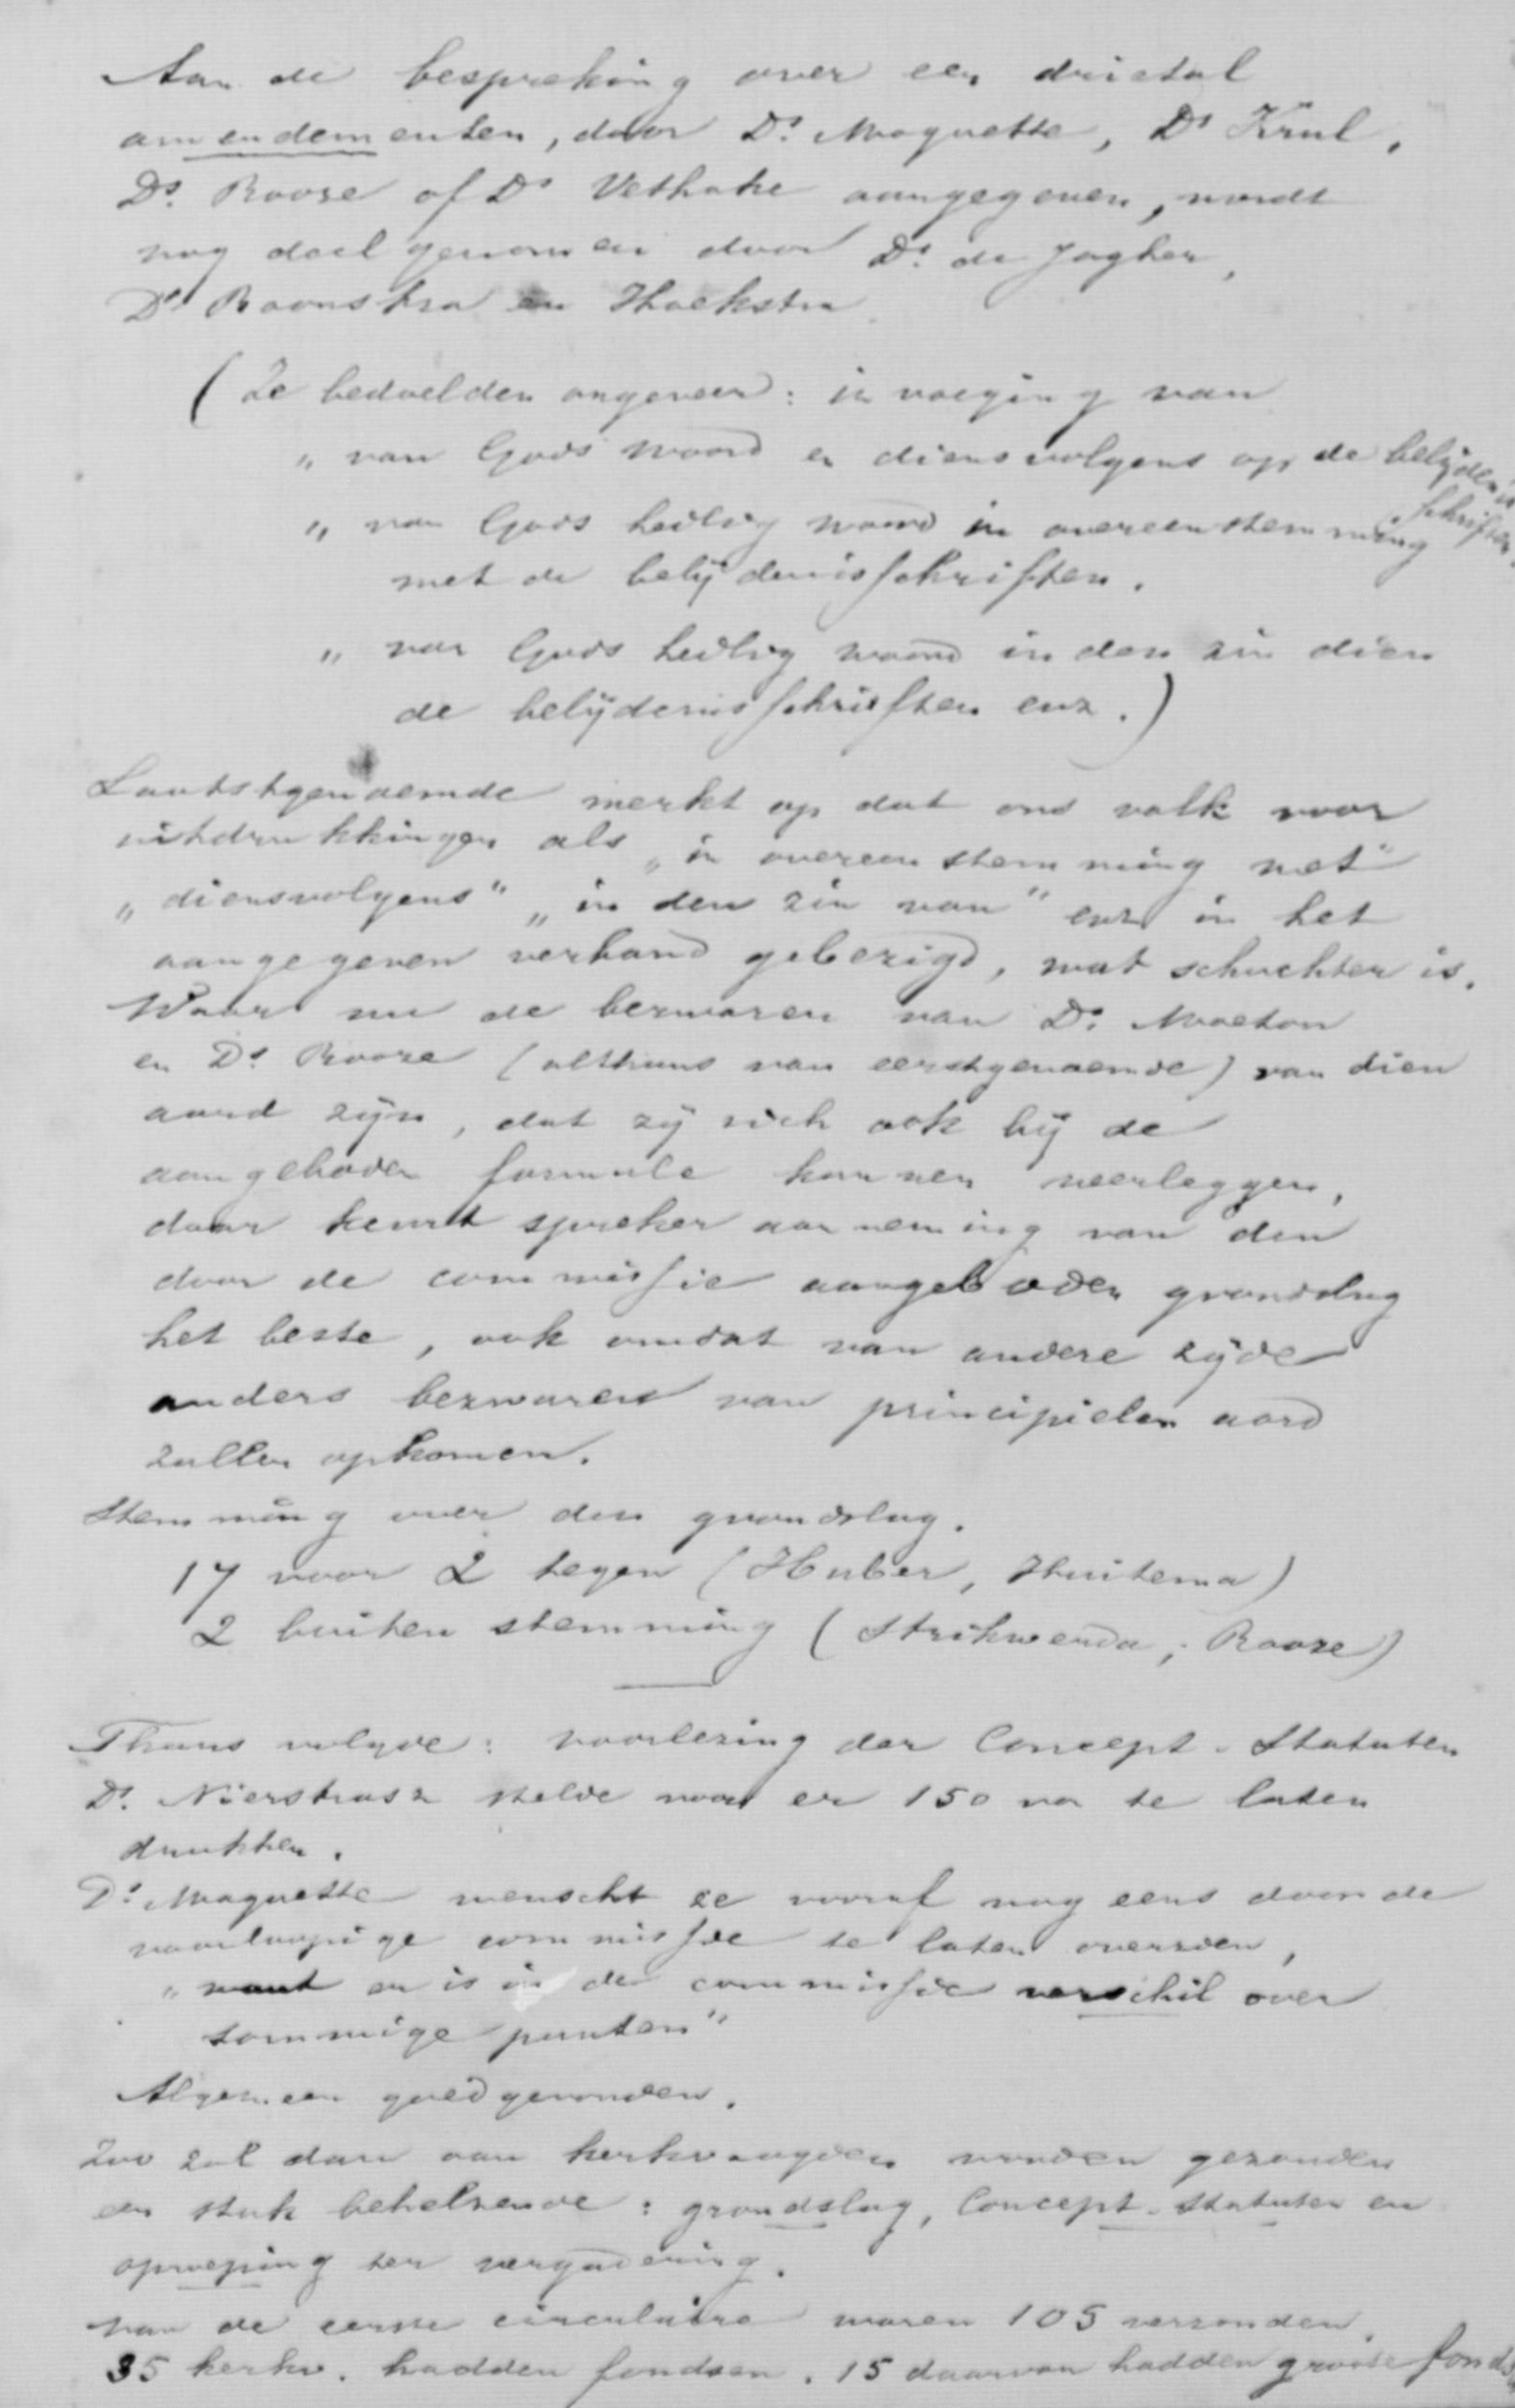 Aan de bespreking over een drietal
amendementen, door Ds. Moquette, Ds Krul,
Ds. Rooze of Ds Vethake aangegeven, wordt
nog deel genomen door Ds. de Jagher,
Ds Boonstra en Hoekstra
(Ze bedoelden ongeveer: in voeging van
„ van Gods woord en diensvolgens op de belijdenis
schriften.
„ van Gods heilig woord in overeenstemming
met de belijdenisschriften.
„ van Gods heilig woord in den zin dien
de belijdenisschriften enz.)
Laatstgenoemde merkt op dat ons volk voor
uitdrukkingen als „in overeenstemming met"
„diensvolgens" „in den zin van" enz in het
aangegeven verband gebezigd, wat schuchter is.
Waar nu de bezwaren van Ds. Moeton
en Ds Rooze (althans van eerstgenoemde) van dien
aard zijn, dat zij zich ook bij de
aangeboden formule kunnen neerleggen,
daar keurt spreker aanneming van den
door de commissie aangeboden grondslag
het beste, ook omdat van andere zijde
anders bezwaren van principielen aard
zullen opkomen.
Stemming over den grondslag.
17 voor 2 tegen (Huber, Huitema)
2 buiten stemming (Strikwerda, Rooze)
Thans volgde: voorlezing der Concept-Statuten
Ds. Nierstrasz stelde voor er 150 van te laten
drukken.
Ds Moquette wenscht ze vooraf nog eens door de
voorloopige commissie te laten overzien,
„want er is in de commissie verschil over
sommige punten"
Algemeen goedgevonden.
Zoo zal dan aan kerkvoogden worden gezonden
een stuk behelzende: grondslag, Concept-Statuten en
oproeping ter vergadering.
van de eerste circulaire waren 105 verzonden.
35 kerkv. hadden fondsen. 15 daarvan hadden groote fonds